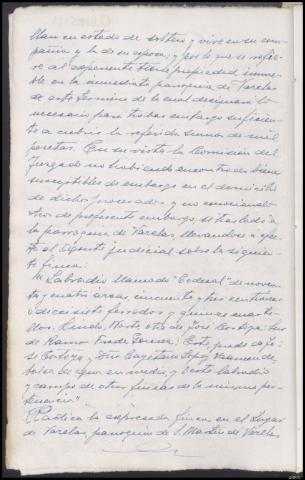 llan en estado de soltero y vive en su com-
pañia y la de su esposa; y por lo que se refie-
re al exponente tiene propiedad inmue-
ble en la inmediata parroquia de Varelas
de este termino de la cual designará lo
necesario para trabar embargo suficien-
te a cubrir la referida suma de mil
pesetas. En su vista la Comisión del
Juzgado no habiendo encontrado bienes
susceptibles de embargo en el domicilio
de dicho procesado y no conociendo
otros de preferente embargo, se trasladó a
la parroquia de Varelas, llevandose a efec-
to el Agente judicial sobre la siguien-
te finca:
Labradio llamado "Codesal" de noven-
ta y cuatro areas, cincuenta y tres centiareas
o diecisiete ferrados y cuartillos.
Linda, Norte de José Cortizo; Sur
de Ramón; Este, prado de Jo-
sé Cortizo y Don Cayetano Lopez
de agua en medio, y Oeste labradio
y campo de otras fincas de la misma per-
tenencia".
Radica la expresada finca en el Lugar
de Varelas, parroquia de S. Martin de Varelas